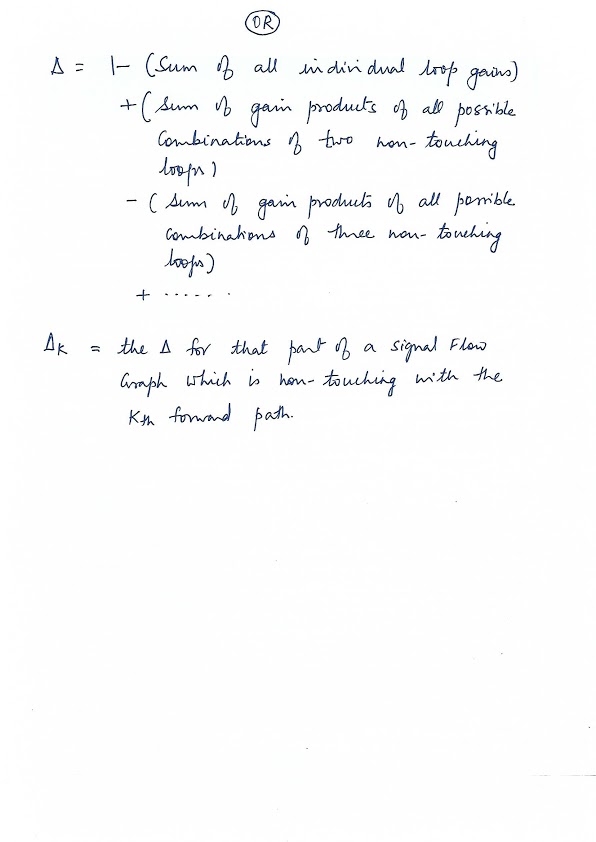 OR
Δ = 1- (Sum of all individual loop gains)
+ (Sum of gain products of all possible
Combinations of two non-touching
loops)
- (Sum of gain products of all possible
combinations of three non-touching
loops)
+ ......
ΔK = the Δ for that part of a signal Flow
Graph which is non-touching with the
Kth forward path.